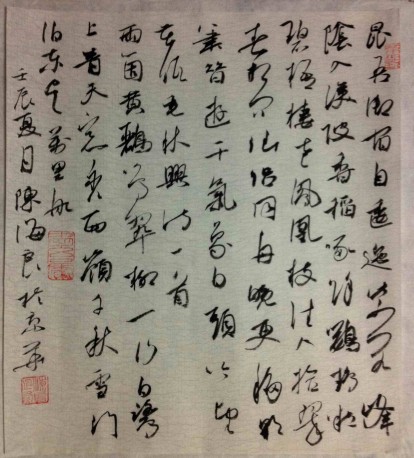 昆吾御宿自逶迤紫阁峰
陰入渼陂香稻啄馀鸚鵡粒
碧梧棲老鳳凰枝佳人拾翠
春相问仙侣同舟晚更移彩
筆昔遊干氣象白頭吟望
苦低垂秋興诗一首
兩箇黃鸝鳴翠柳一行白鷺
上青天窗含西嶺千秋雪门
泊东吴萬里船
壬辰夏月陳海良於京華